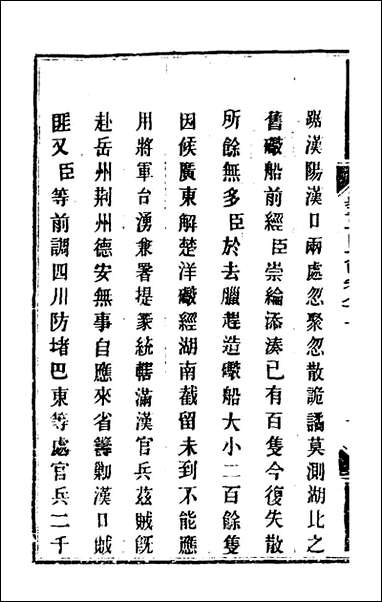 踞漢陽漢口兩處忽聚忽散詭譎莫測湖北之
舊礮船前經臣崇綸添湊已有百隻今復失散
所餘無多臣於去臘趕造礮船大小二百餘隻
因候廣東解楚洋礮經湖南截留未到不能應
用將軍台湧兼署提篆統轄滿漢官兵茲賊旣
赴岳州荆州德安無事自應來省籌勦漢口賊
匪又臣等前調四川防堵巴東等處官兵二千